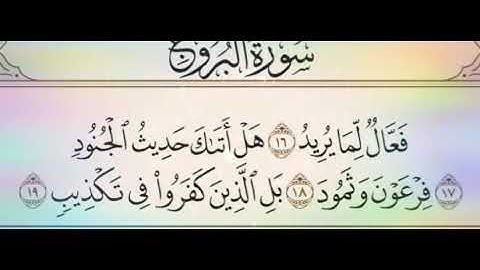 سُورَةُ الْبُرُوجِ
فَعَّالٌ لِّمَا يُرِيدُ ١٦ هَلْ أَتَىٰكَ حَدِيثُ الْجُنُودِ
١٧ فِرْعَوْنَ وَثَمُودَ ١٨ بَلِ الَّذِينَ كَفَرُوا۟ فِى تَكْذِيبٍ ١٩